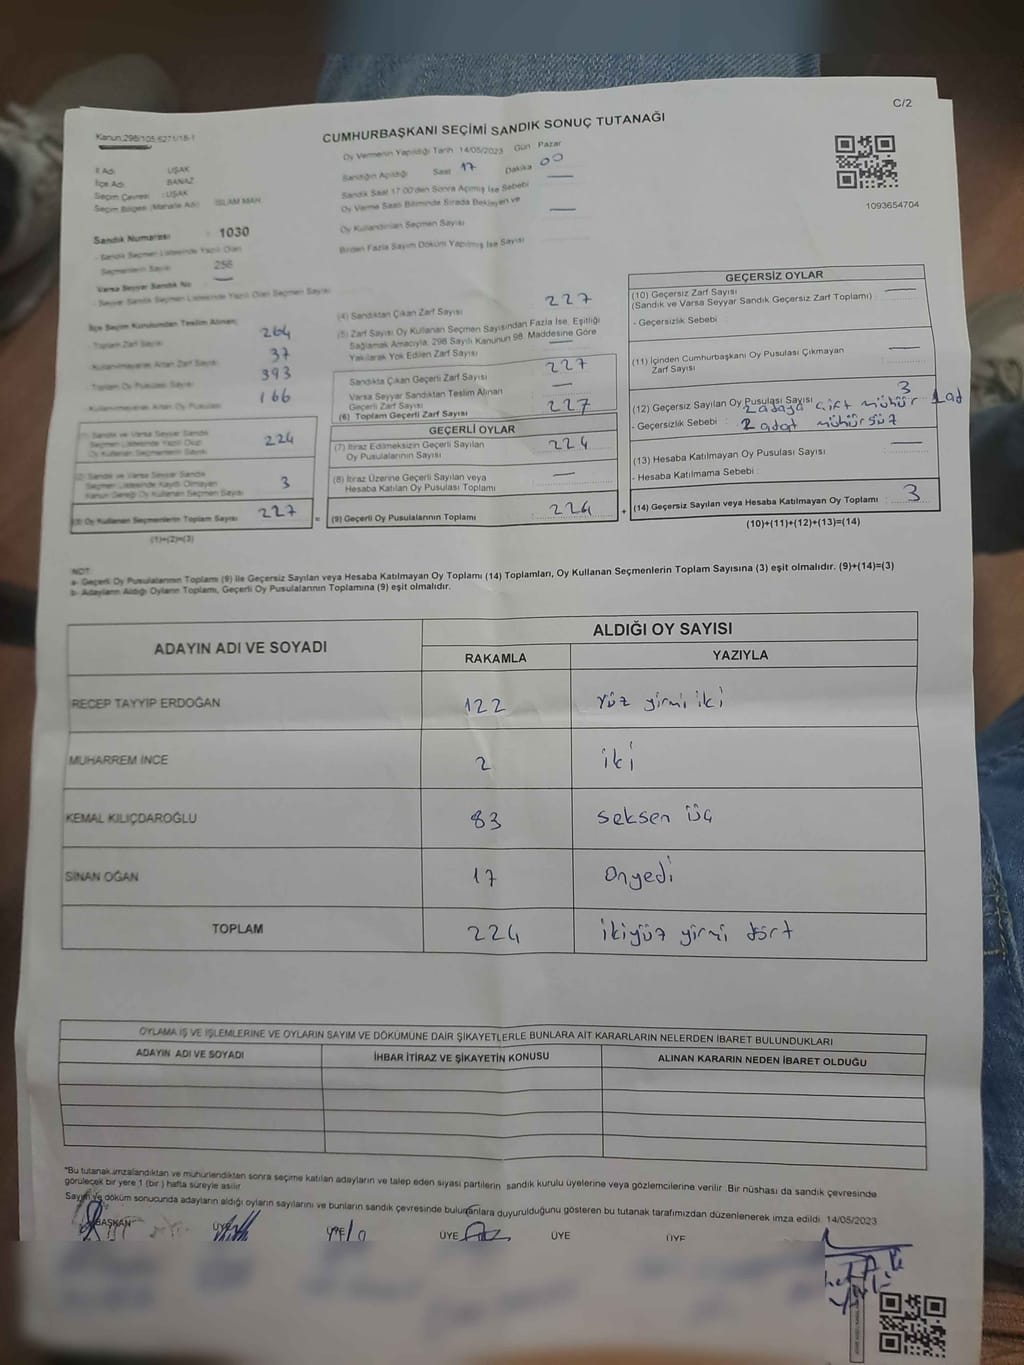 C/2
Kanun.298/105,6271/18-1
CUMHURBAŞKANI SEÇİMİ SANDIK SONUÇ TUTANAĞI
Oy Vermenin Yapıldığı Tarih 14/05/2023 Gün Pazar
Sandığın Açıldığı Saat 17 Dakika 00
Sandık Saat 17:00'den Sonra Açılmış İse Sebebi
Oy Verme Saati Bitiminde Sırada Bekleyen ve
Oy Kullandırılan Seçmen Sayısı
Birden Fazla Sayım Döküm Yapılmış İse Sayısı
1093654704
İl Adı : UŞAK
İlçe Adı BANAZ
Seçim Çevresi : UŞAK
Seçim Bölgesi (Mahalle Adı) İSLAM MAH.
Sandık Numarası : 1030
- Sandık Seçmen Listesinde Yazılı Olan
Seçmenlerin Sayısı 256
Varsa Seyyar Sandık No
- Seyyar Sandık Seçmen Listesinde Yazılı Olan Seçmen Sayısı
İlçe Seçim Kurulundan Teslim Alınan;
- Toplam Zarf Sayısı 264
- Kullanılmayarak Artan Zarf Sayısı 37
- Toplam Oy Pusulası Sayısı 393
- Kullanılmayarak Artan Oy Pusulası 166
(1) Sandık ve Varsa Seyyar Sandık
Seçmen Listesinde Yazılı Olup
Oy Kullanan Seçmenlerin Sayısı 224
(2) Sandık ve Varsa Seyyar Sandık
Seçmen Listesinde Kayıtlı Olmayan
Kanun Gereği Oy Kullanan Seçmen Sayısı 3
(3) Oy Kullanan Seçmenlerin Toplam Sayısı 227
(1)+(2)=(3)
(4) Sandıktan Çıkan Zarf Sayısı 227
(5) Zarf Sayısı Oy Kullanan Seçmen Sayısından Fazla İse, Eşitliği
Sağlamak Amacıyla, 298 Sayılı Kanunun 98. Maddesine Göre
Yakılarak Yok Edilen Zarf Sayısı
Sandıkta Çıkan Geçerli Zarf Sayısı 227
Varsa Seyyar Sandıktan Teslim Alınan
Geçerli Zarf Sayısı
(6) Toplam Geçerli Zarf Sayısı 227
GEÇERLİ OYLAR
(7) İtiraz Edilmeksizin Geçerli Sayılan
Oy Pusulalarının Sayısı 224
(8) İtiraz Üzerine Geçerli Sayılan veya
Hesaba Katılan Oy Pusulası Toplamı
= (9) Geçerli Oy Pusulalarının Toplamı 224
GEÇERSİZ OYLAR
(10) Geçersiz Zarf Sayısı
(Sandık ve Varsa Seyyar Sandık Geçersiz Zarf Toplamı)
- Geçersizlik Sebebi
(11) İçinden Cumhurbaşkanı Oy Pusulası Çıkmayan
Zarf Sayısı
(12) Geçersiz Sayılan Oy Pusulası Sayısı 3
2 adaya çift mühür 1ad
- Geçersizlik Sebebi : 2 adat mühürsüz
(13) Hesaba Katılmayan Oy Pusulası Sayısı
- Hesaba Katılmama Sebebi
+ (14) Geçersiz Sayılan veya Hesaba Katılmayan Oy Toplamı 3
(10)+(11)+(12)+(13)=(14)
NOT:
a- Geçerli Oy Pusulalarının Toplamı (9) ile Geçersiz Sayılan veya Hesaba Katılmayan Oy Toplamı (14) Toplamları, Oy Kullanan Seçmenlerin Toplam Sayısına (3) eşit olmalıdır. (9)+(14)=(3)
b- Adayların Aldığı Oyların Toplamı, Geçerli Oy Pusulalarının Toplamına (9) eşit olmalıdır.
ADAYIN ADI VE SOYADI ALDIĞI OY SAYISI
RAKAMLA YAZIYLA
RECEP TAYYİP ERDOĞAN 122 Yüz yirmi iki
MUHARREM İNCE 2 iki
KEMAL KILIÇDAROĞLU 83 seksen üç
SİNAN OĞAN 17 Onyedi
TOPLAM 224 ikiyüz yirmi dört
OYLAMA İŞ VE İŞLEMLERİNE VE OYLARIN SAYIM VE DÖKÜMÜNE DAİR ŞİKAYETLERLE BUNLARA AİT KARARLARIN NELERDEN İBARET BULUNDUKLARI
ADAYIN ADI VE SOYADI İHBAR İTİRAZ VE ŞİKAYETİN KONUSU ALINAN KARARIN NEDEN İBARET OLDUĞU
*Bu tutanak imzalandıktan ve mühürlendikten sonra seçime katılan adayların ve talep eden siyasi partilerin sandık kurulu üyelerine veya gözlemcilerine verilir. Bir nüshası da sandık çevresinde
görülecek bir yere 1 (bir) hafta süreyle asılır.
Sayım ve döküm sonucunda adayların aldığı oyların sayılarını ve bunların sandık çevresinde bulunanlara duyurulduğunu gösteren bu tutanak tarafımızdan düzenlenerek imza edildi. 14/05/2023
BAŞKAN ÜYE ÜYE ÜYE ÜYE ÜYE